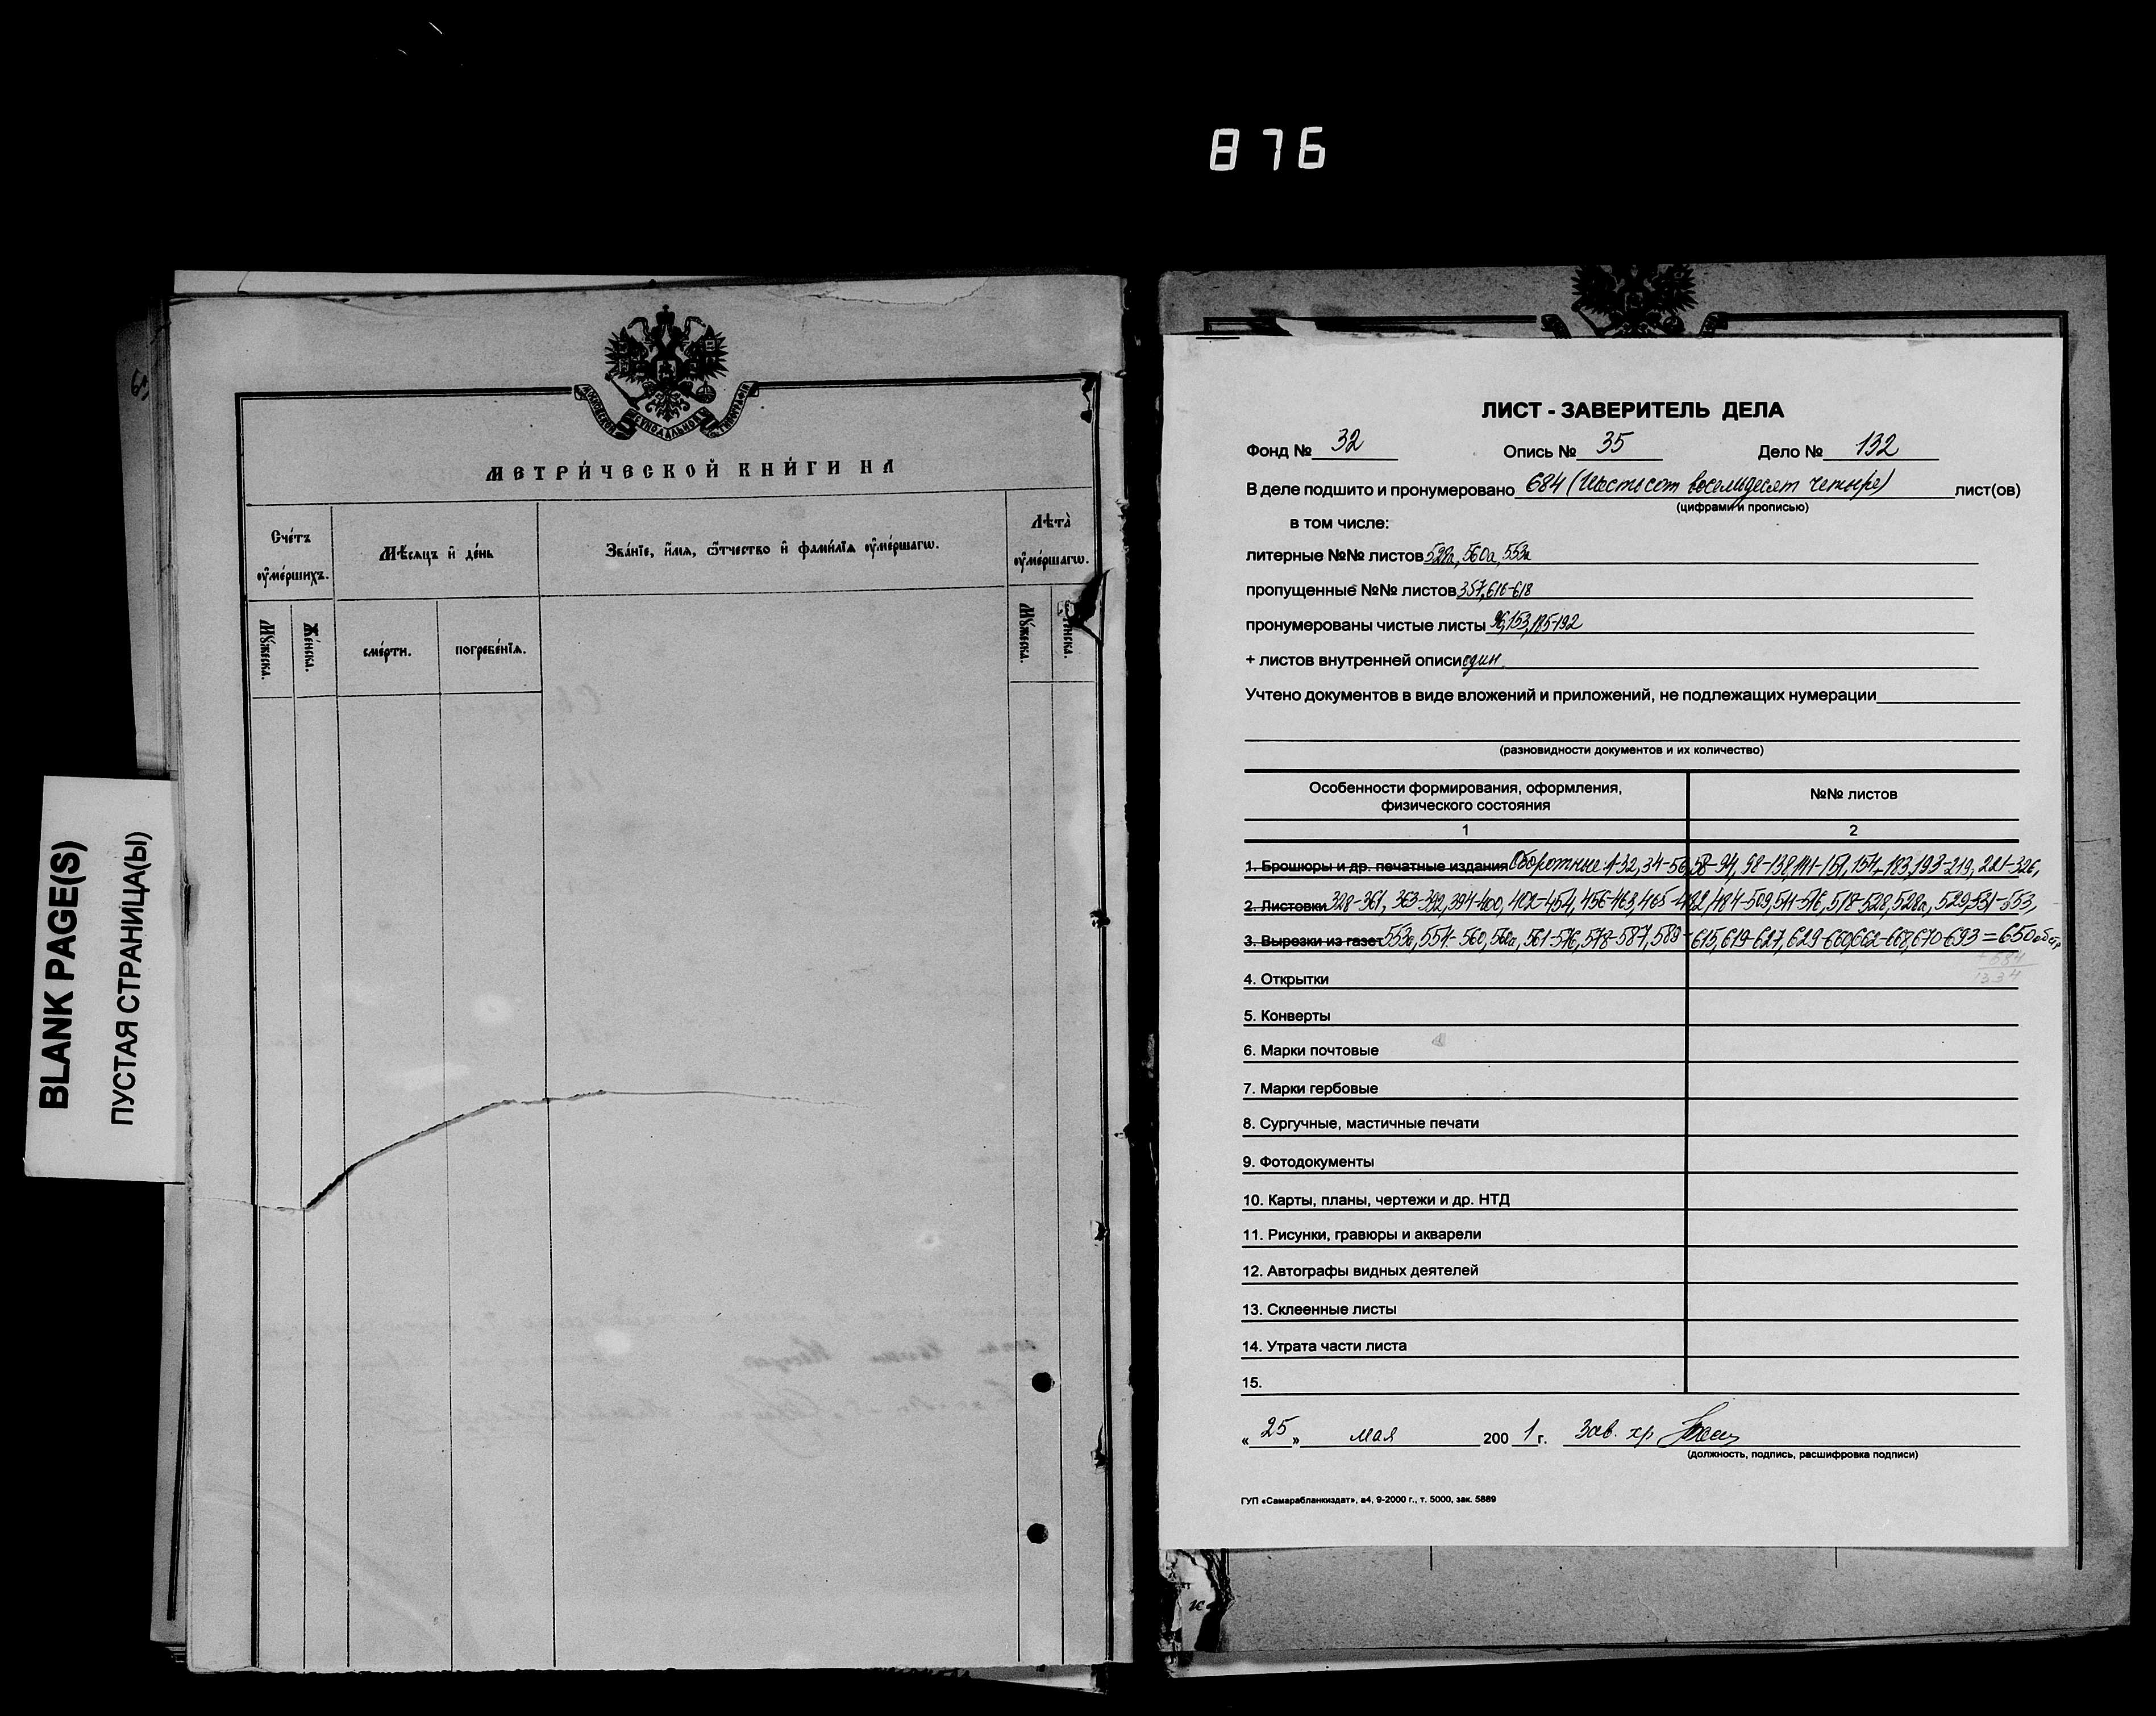 876
BLANK PAGE(S)
ПУСТАЯ СТРАНИЦА(Ы)
МОСКОВСКОЙ СѴНОДАЛЬНОЙ ТИПОГРАФІИ
МЕТРИ́ЧЕСКОЙ КНИ́ГИ НА
Сче́тъ ᲂу҆ме́ршихъ.
Мѣ́сяцъ и҆ де́нь
Зва́нїе, и҆́мѧ, ѻ҆́тчество и҆ фами́лїѧ ᲂу҆ме́ршагѡ.
Лѣта̀ ᲂу҆ме́ршагѡ.
Му́жеска.
Же́нска.
сме́рти.
погребе́нїѧ.
Му́жеска.
Же́нска.
ЛИСТ - ЗАВЕРИТЕЛЬ ДЕЛА
Фонд № 32 Опись № 35 Дело № 132
В деле подшито и пронумеровано 684 (Шестьсот восемьдесят четыре) лист(ов)
(цифрами и прописью)
в том числе:
литерные №№ листов 528а, 560а, 553а
пропущенные №№ листов 357, 616-618
пронумерованы чистые листы 96, 153, 185-192
+ листов внутренней описи один
Учтено документов в виде вложений и приложений, не подлежащих нумерации
(разновидности документов и их количество)
Особенности формирования, оформления, физического состояния
№№ листов
1 2
1. Брошюры и др. печатные издания Оборотные: 1-32, 34-56, 58-94, 98-138, 141-151, 154-183, 193-219, 221-326,
2. Листовки 328-361, 363-392, 394-400, 402-454, 456-463, 465-482, 484-509, 511-516, 518-528, 528а, 529, 531-553,
3. Вырезки из газет 553а, 554-560, 560а, 561-576, 578-587, 589-615, 619-627, 629-660, 662-668, 670-693 = 650 обор
+ 684
1334
4. Открытки
5. Конверты
6. Марки почтовые
7. Марки гербовые
8. Сургучные, мастичные печати
9. Фотодокументы
10. Карты, планы, чертежи и др. НТД
11. Рисунки, гравюры и акварели
12. Автографы видных деятелей
13. Склеенные листы
14. Утрата части листа
15.
« 25 » мая 200 1 г. Зав. хр
(должность, подпись, расшифровка подписи)
ГУП «Самарабланкиздат», а4, 9-2000 г., т. 5000, зак. 5889